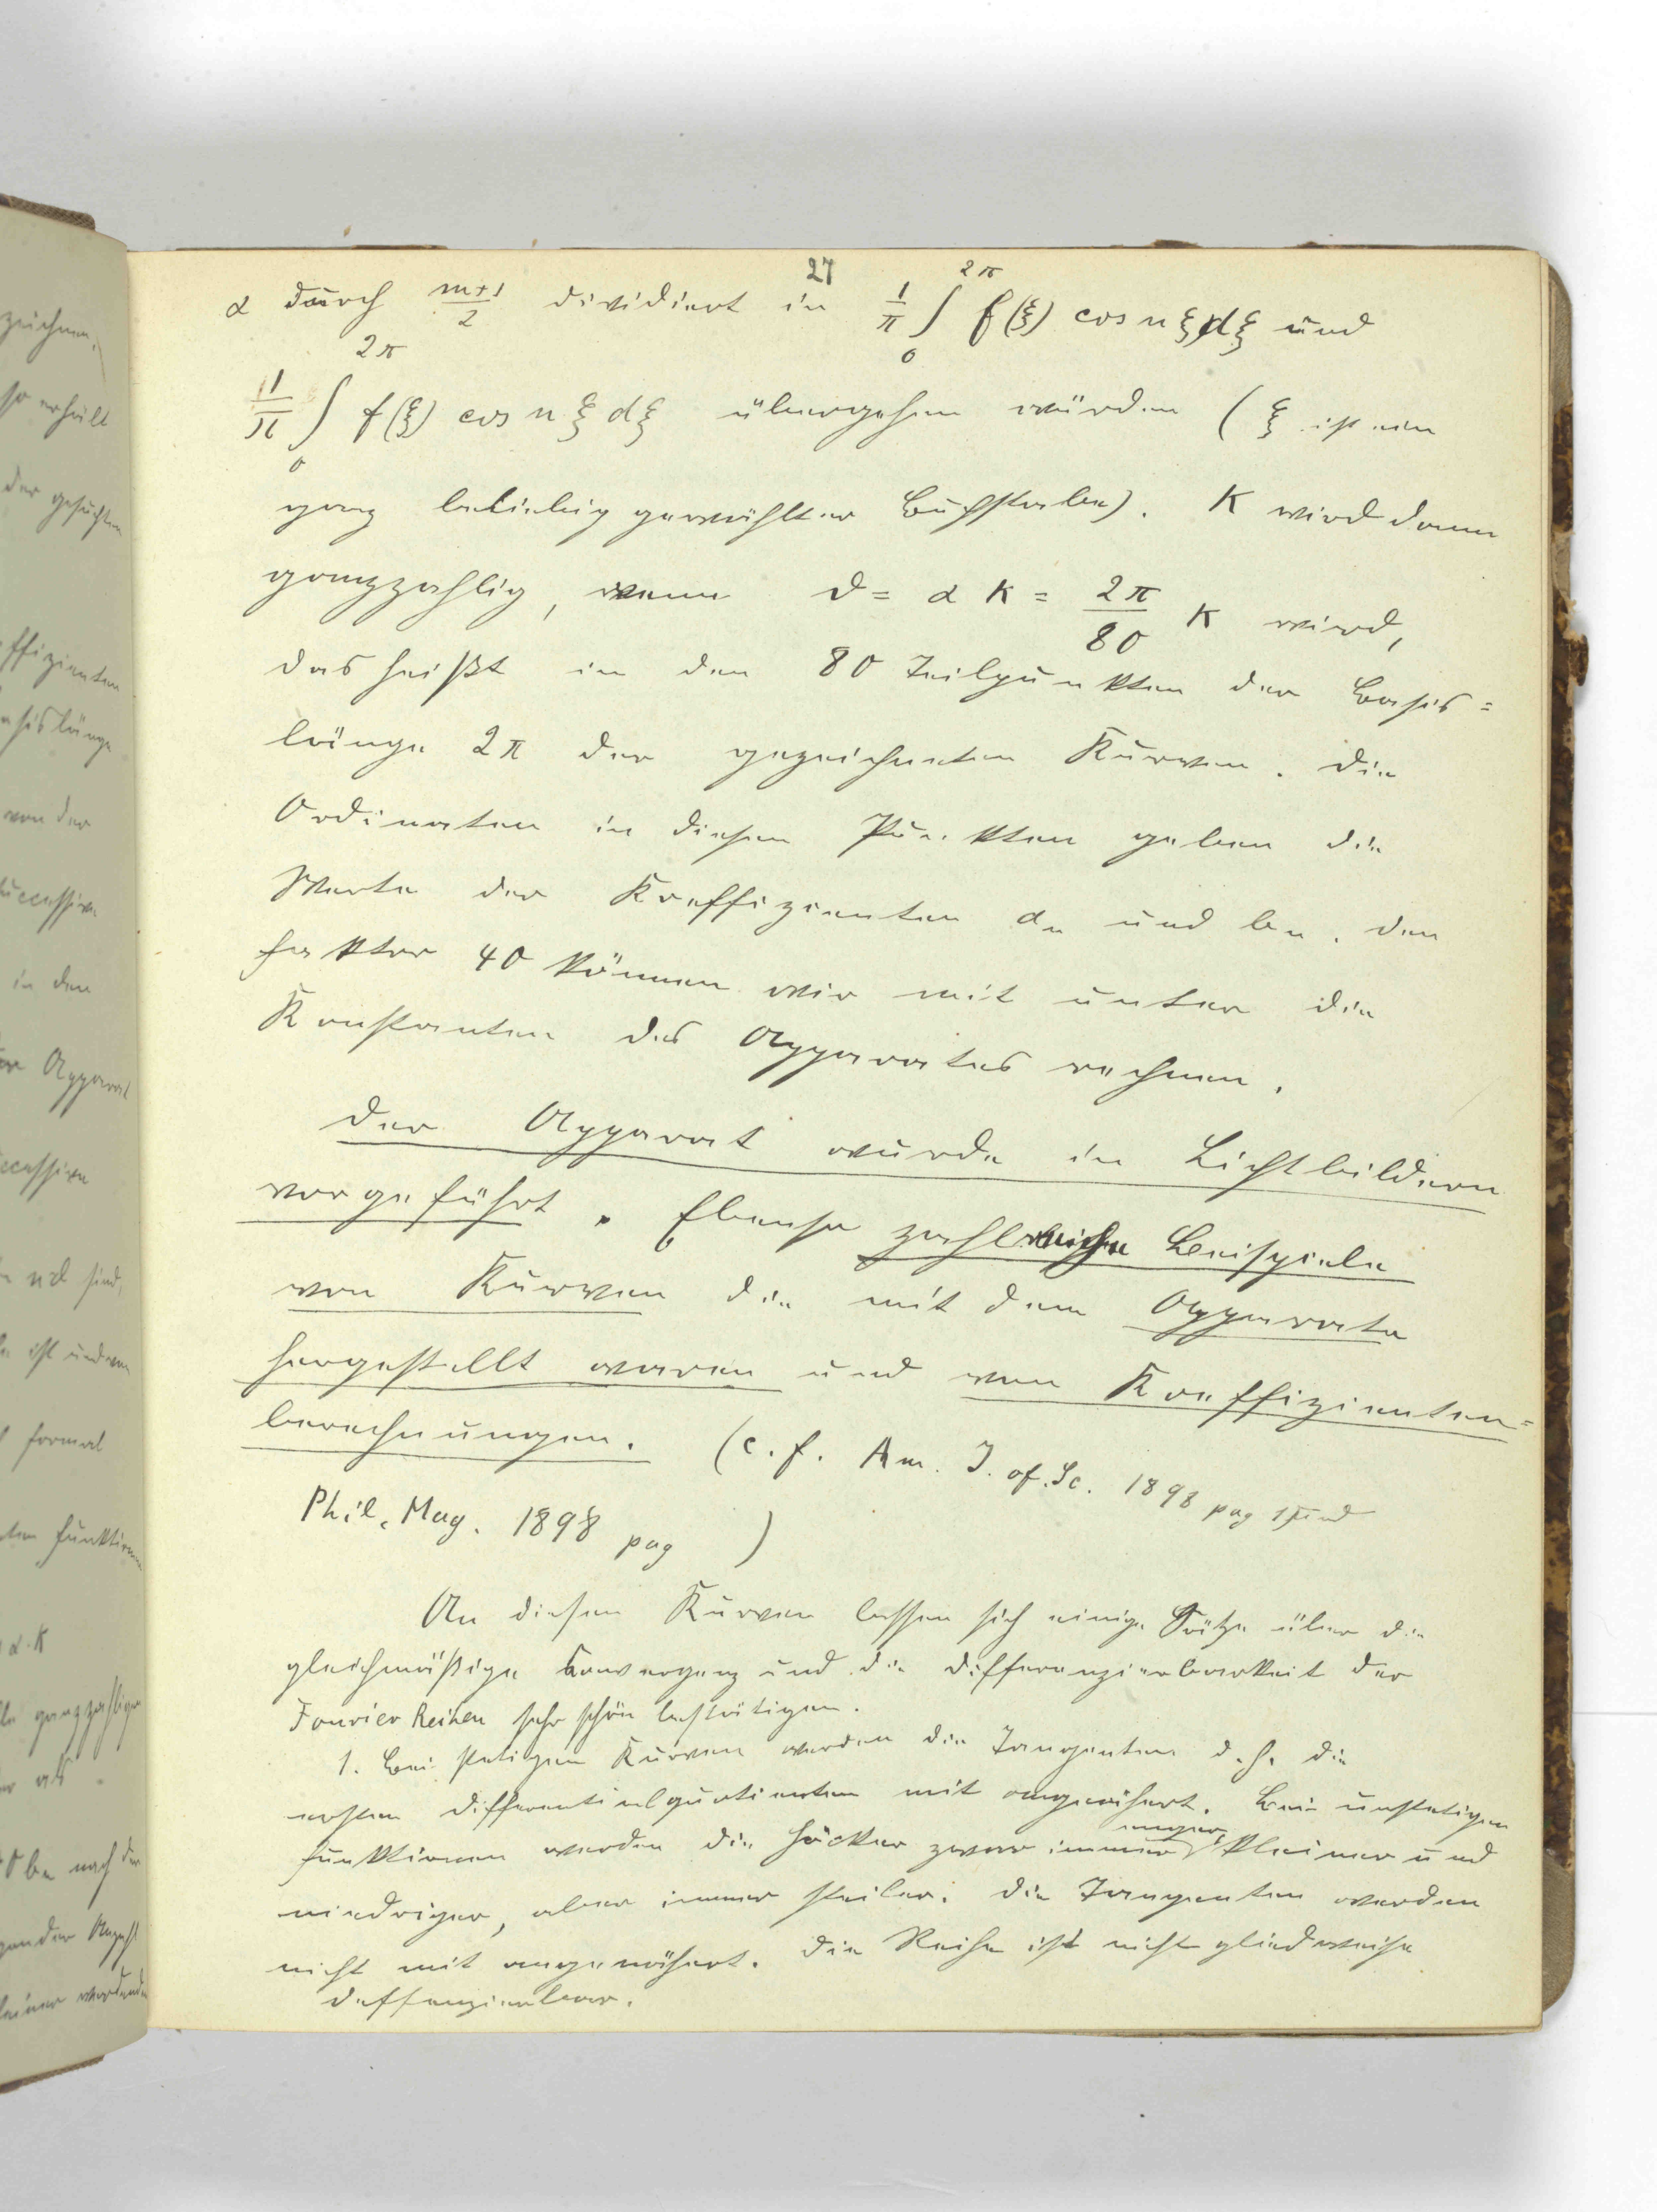 27
α durch (m+1)/2 dividiert in 1/π ∫₀^2π f(ξ) cos n ξ dξ und
1/π ∫₀^2π f(ξ) cos n ξ dξ übergehen würden ( ξ ist ein
ganz beliebig gewählter Buchstabe). K wird dann
ganzzahlig, wenn ϑ = α K = 2π/80 K wird,
das heißt in den 80 Teilpunkten der Basis=
länge 2π der gezeichneten Kurven. Die
Ordinaten in diesen Punkten geben die
Werte der Koeffizienten an und bn. Den
Faktor 40 können wir mit unter die
Konstanten des Apparates rechnen.
Der Apparat wurde in Lichtbildern
vorgeführt. Ebenso zahlreiche Beispiele
von Kurven die mit dem Apparate
hergestellt waren und von Koeffizienten=
berechnungen. (c.f. Am. J. of. Sc. 1898 pag 1 und
Phil. Mag. 1898 pag )
An diesen Kurven lassen sich einige Sätze über die
gleichmäßige Konvergenz und die Differenzierbarkeit der
Fourier Reihen sehr schön bestätigen.
1. Bei stetigen Kurven werden die Tangenten d.h. die
ersten Differentialquotienten mit angenähert. Bei unstetigen
Funktionen werden die Höcker zwar immer enger, kleiner und
niedriger, aber immer steiler. Die Tangenten werden
nicht mit angenähert. Die Reihe ist nicht gliedweise
deffenzierbar.
zeichnen,
so erhält
der gesuchten
effizienten
asislänge
von der
successive
in den
Apparat
ccessive
und sind,
ist und von
formal
Funktionen
α. K
ganzzahlige
als
bn nach der
Anzahl
kleiner werdende